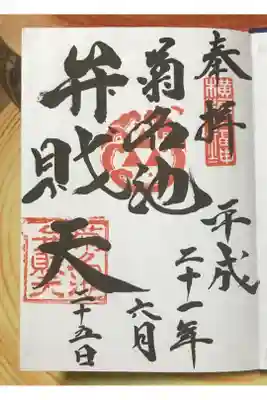 奉拝
平成
二十一年
菊名池
六月
弁財天
二十五日